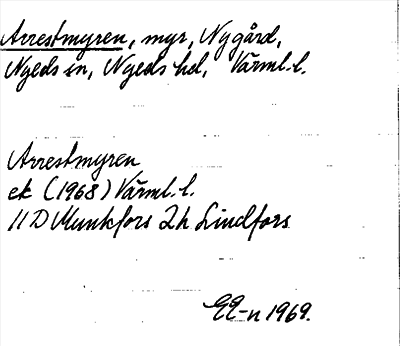 Arrestmyren, myr, Nygård,
Nyeds sn, Nyeds hd, Värml. l.
Arrestmyren
ek (1968) Värml. l.
11 D Munkfors 2h Lindfors
EE-n 1969.